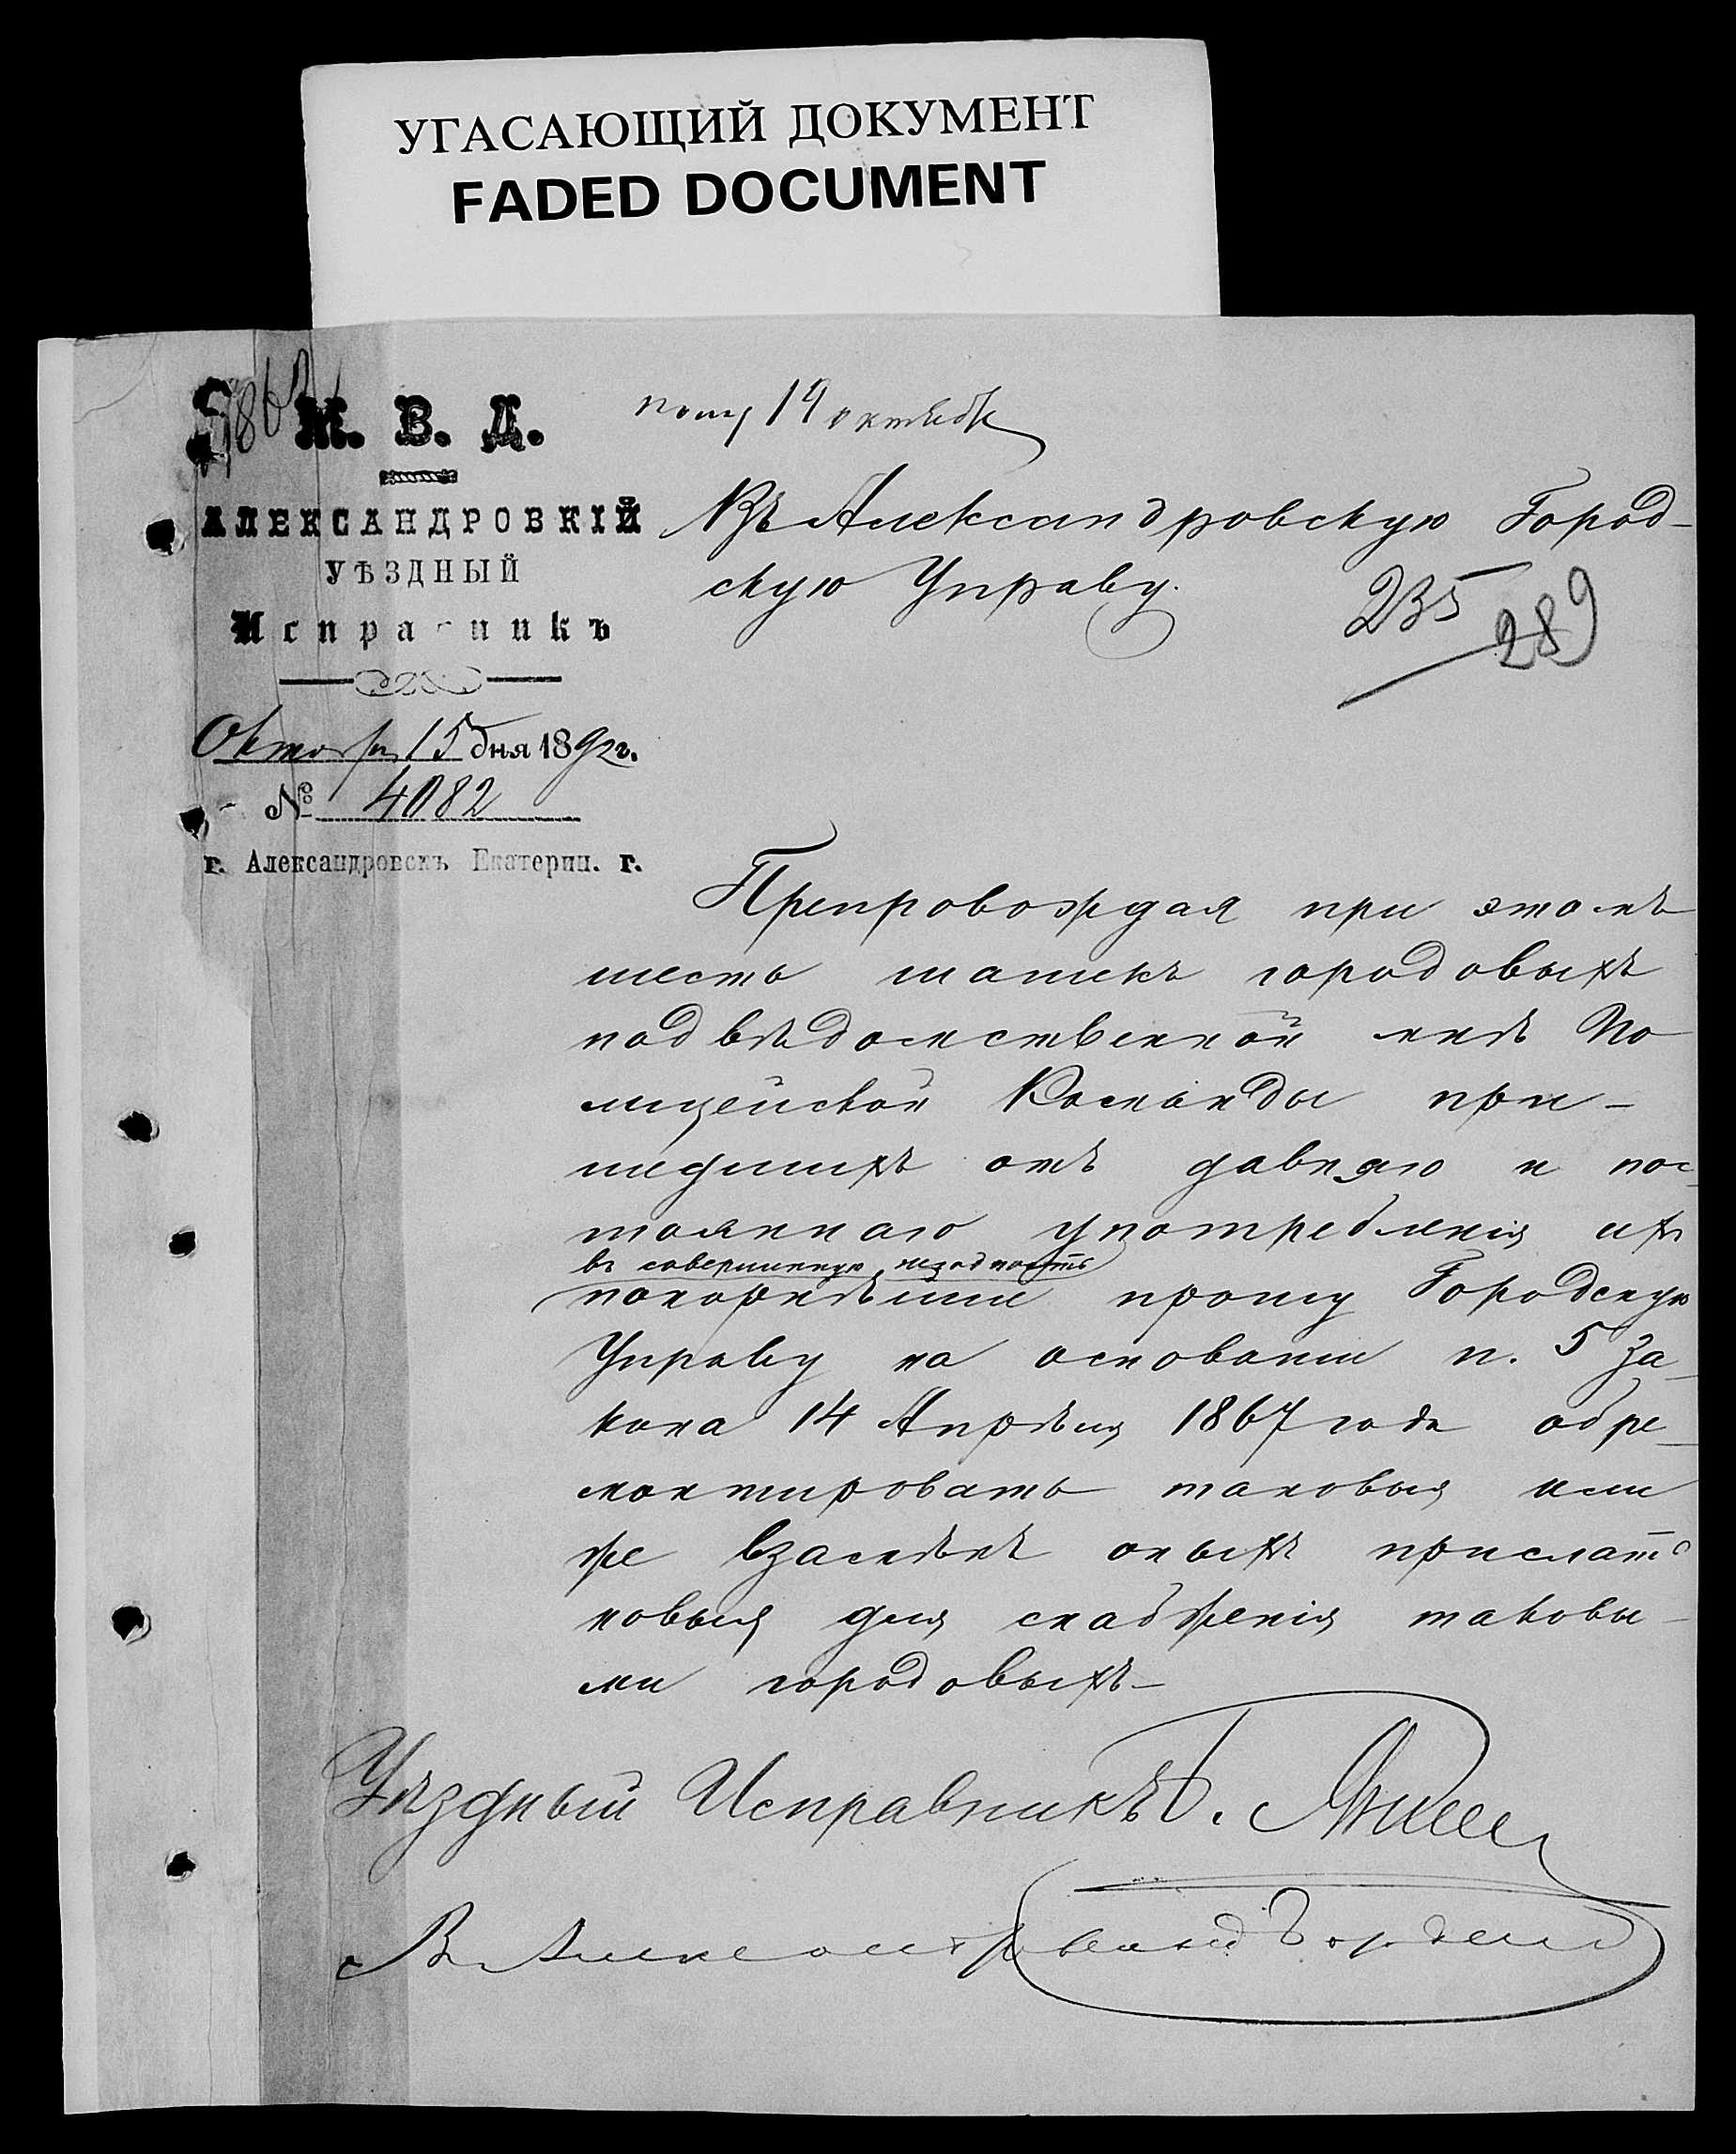 УГАСАЮЩИЙ ДОКУМЕНТ
FADED DOCUMENT
М. В. Д.
АЛЕКСАНДРОВКІЙ
УѢЗДНЫЙ
Исправникъ
Октября 15 дня 1892 г.
№ 4082
г. Александровскъ Екатерин. г.
пол 19 октября
Въ Александровскую Город-
скую Управу.
235
289
Препровождая при этомъ
шесть шашекъ городовыхъ
подвѣдомственной мнѣ По
лицейской Команды при-
шедшихъ отъ давняго и пос-
тояннаго употребленія ихъ
въ совершенную негодность
покорнѣйше прошу Городскую
Управу на основаніи п. 5 За-
кона 14 Апрѣля 1867 года обре-
монтировать таковыя или
же взамѣнъ оныхъ прислать
новыя для снабженія таковы-
ми городовыхъ-
Уѣздный Исправникъ